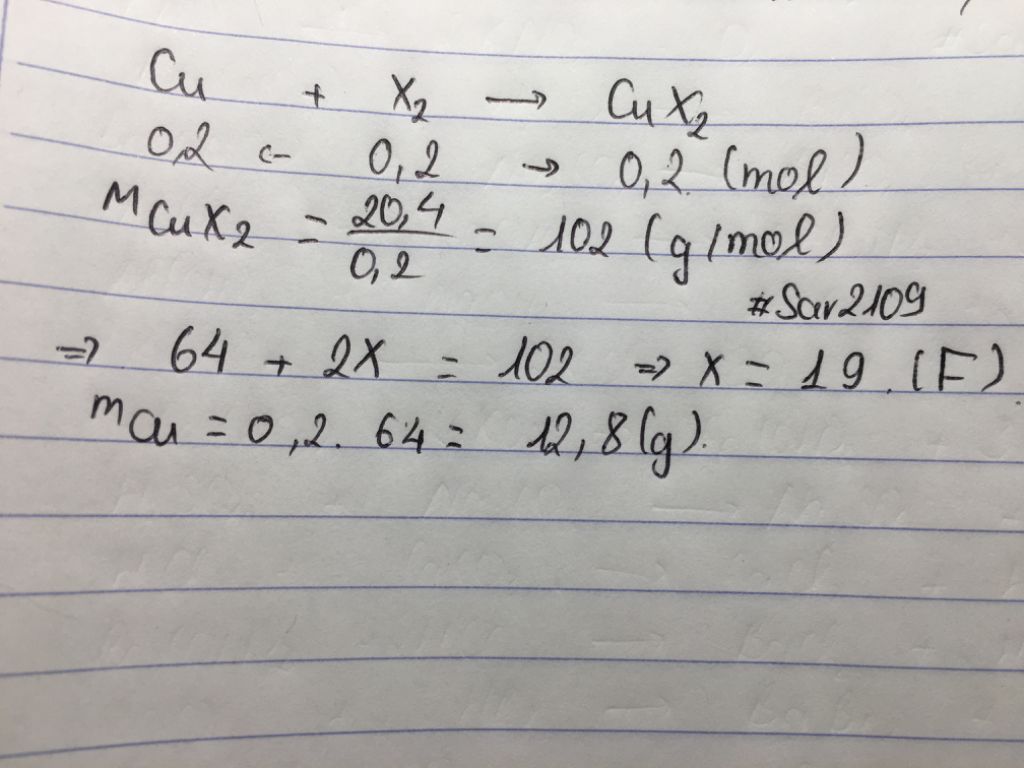 Cu + X₂ → CuX₂
0,2 ← 0,2 → 0,2 (mol)
M CuX₂ = 20,4 / 0,2 = 102 (g/mol)
#Sar2109
⇒ 64 + 2X = 102 ⇒ X = 19. (F).
m Cu = 0,2. 64 = 12,8(g).